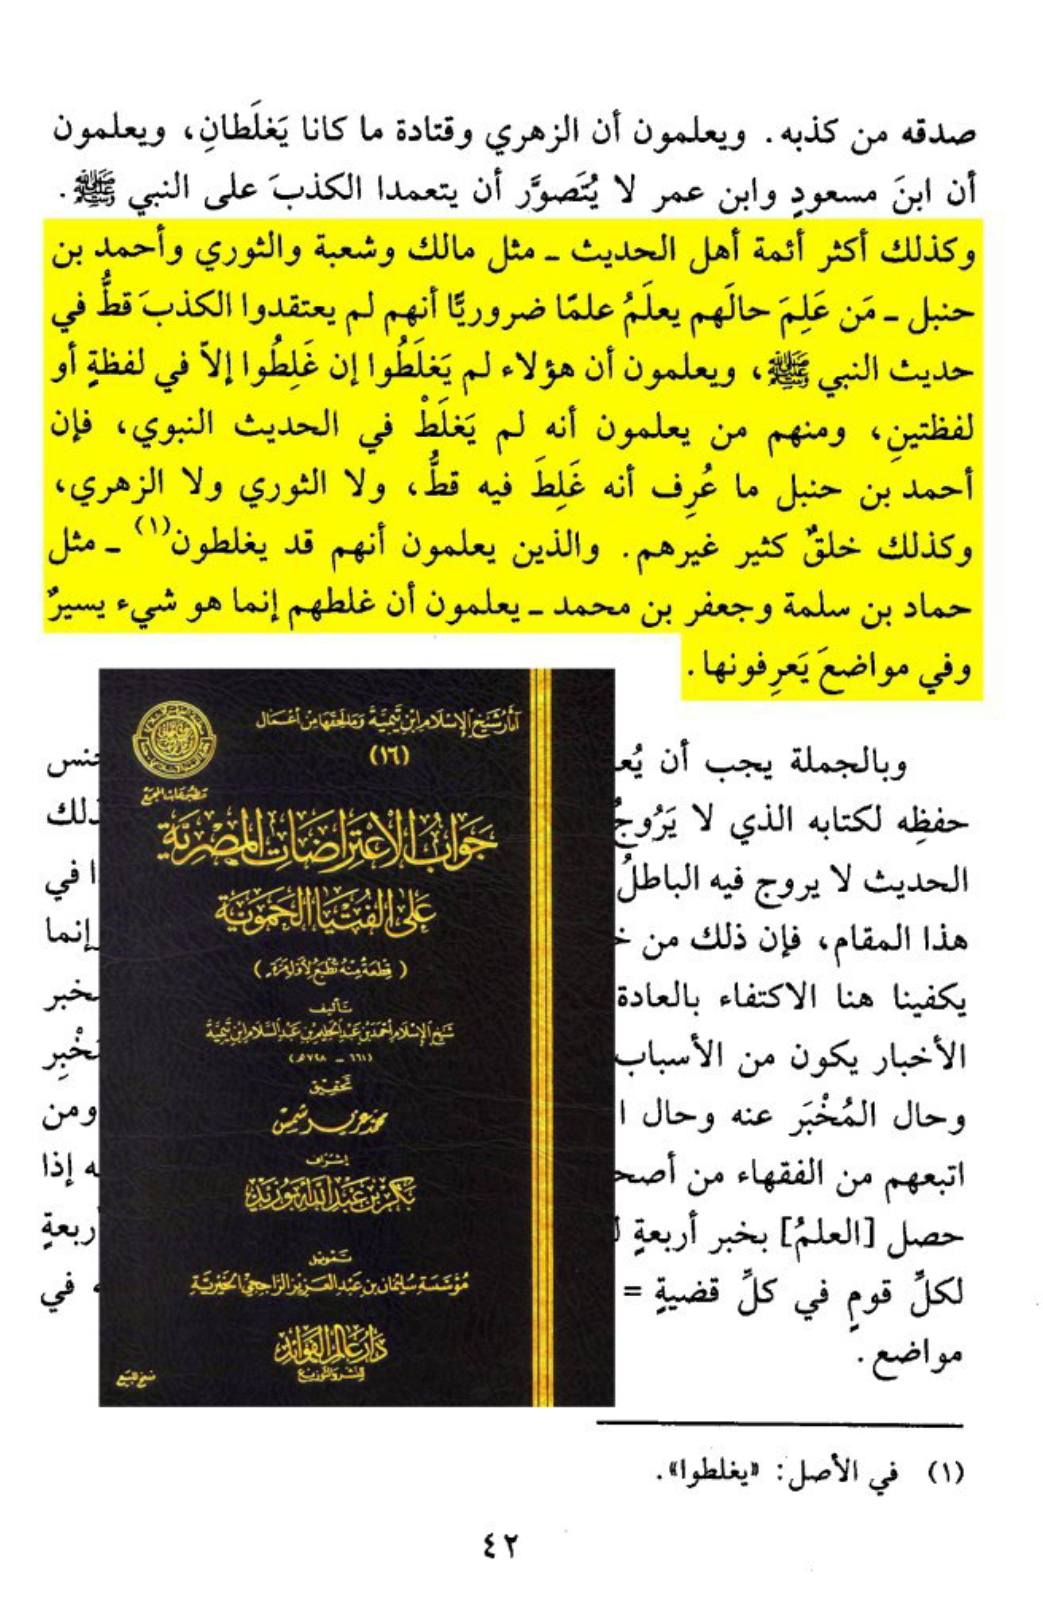 صدقه من كذبه. ويعلمون أن الزهري وقتادة ما كانا يَغلَطانِ، ويعلمون
أن ابنَ مسعودٍ وابن عمر لا يُتَصوَّر أن يتعمدا الكذبَ على النبي ﷺ.
وكذلك أكثر أئمة أهل الحديث ـ مثل مالك وشعبة والثوري وأحمد بن
حنبل ـ مَن عَلِمَ حالَهم يعلَمُ علمًا ضروريًّا أنهم لم يعتقدوا الكذبَ قطُّ في
حديث النبي ﷺ، ويعلمون أن هؤلاء لم يَغلَطُوا إن غَلِطُوا إلاّ في لفظةٍ أو
لفظتينِ، ومنهم من يعلمون أنه لم يَغلَطْ في الحديث النبوي، فإن
أحمد بن حنبل ما عُرِف أنه غَلِطَ فيه قطُّ، ولا الثوري ولا الزهري،
وكذلك خلقٌ كثير غيرهم. والذين يعلمون أنهم قد يغلطون(١) ـ مثل
حماد بن سلمة وجعفر بن محمد ـ يعلمون أن غلطهم إنما هو شيء يسيرٌ
وفي مواضعَ يَعرِفونها.
وبالجملة يجب أن
حفظِه لكتابه الذي لا
الحديث لا يروج فيه الباطلُ في
هذا المقام، فإن ذلك من إنما
يكفينا هنا الاكتفاء بالعادة
الأخبار يكون من الأسباب
وحال المُخْبَر عنه وحال ومن
اتبعهم من الفقهاء من إذا
حصل [العلمُ] بخبر أربعةٍ
لكلِّ قومٍ في كلِّ قضيةٍ = في
مواضع.
آثار شيخ الإسلام ابن تيمية وما لحقها من أعمال
(١٦)
مطبوعات المجمع
جواب الاعتراضات المصرية
على الفتيا الحموية
(قطعة منه تطبع لأول مرة)
تأليف
شيخ الإسلام أحمد بن عبد الحليم بن عبد السلام ابن تيمية
(٦٦١ - ٧٢٨هـ)
تحقيق
محمد عزير شمس
إشراف
بكر بن عبد الله أبو زيد
تمويل
مؤسسة سليمان بن عبد العزيز الراجحي الخيرية
دار عالم الفوائد
للنشر والتوزيع
(١) في الأصل: «يغلطوا».
٤٢